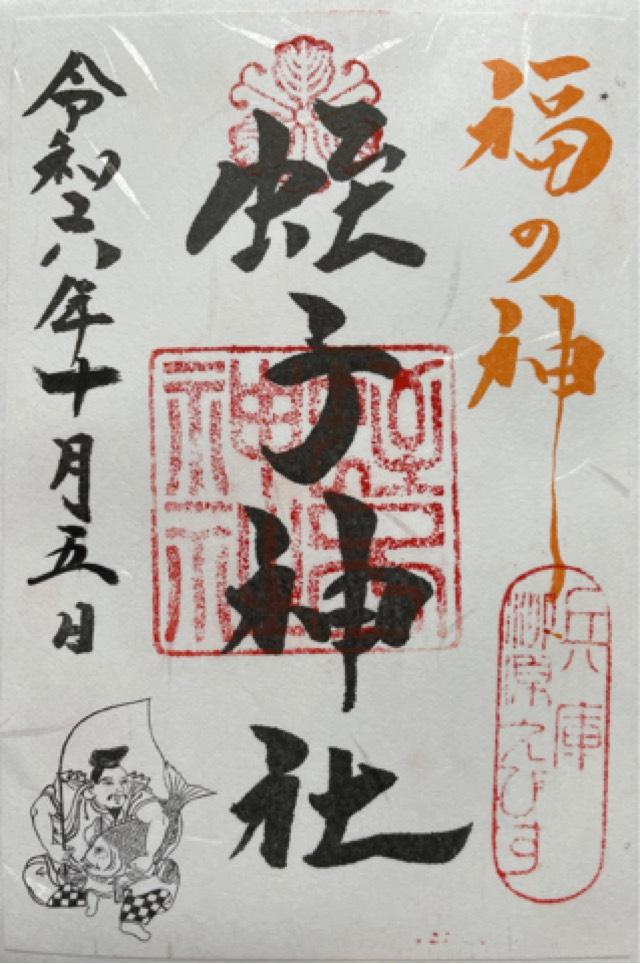 福の神
兵庫
柳原えびす
蛭子神社
蛭子神社
令和六年十月五日